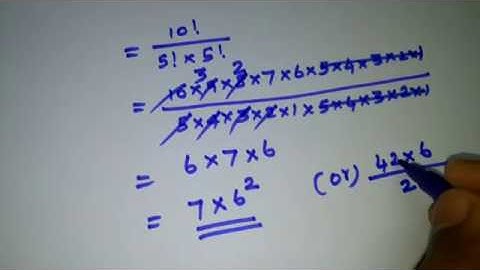 = 10! / 5! × 5!
3 2
= 10 × 9 × 8 × 7 × 6 × 5 × 4 × 3 × 2 × 1 / 5 × 4 × 3 × 2 × 1 × 5 × 4 × 3 × 2 × 1
= 6 × 7 × 6
= 7 × 6² (or) 42 × 6 / 2